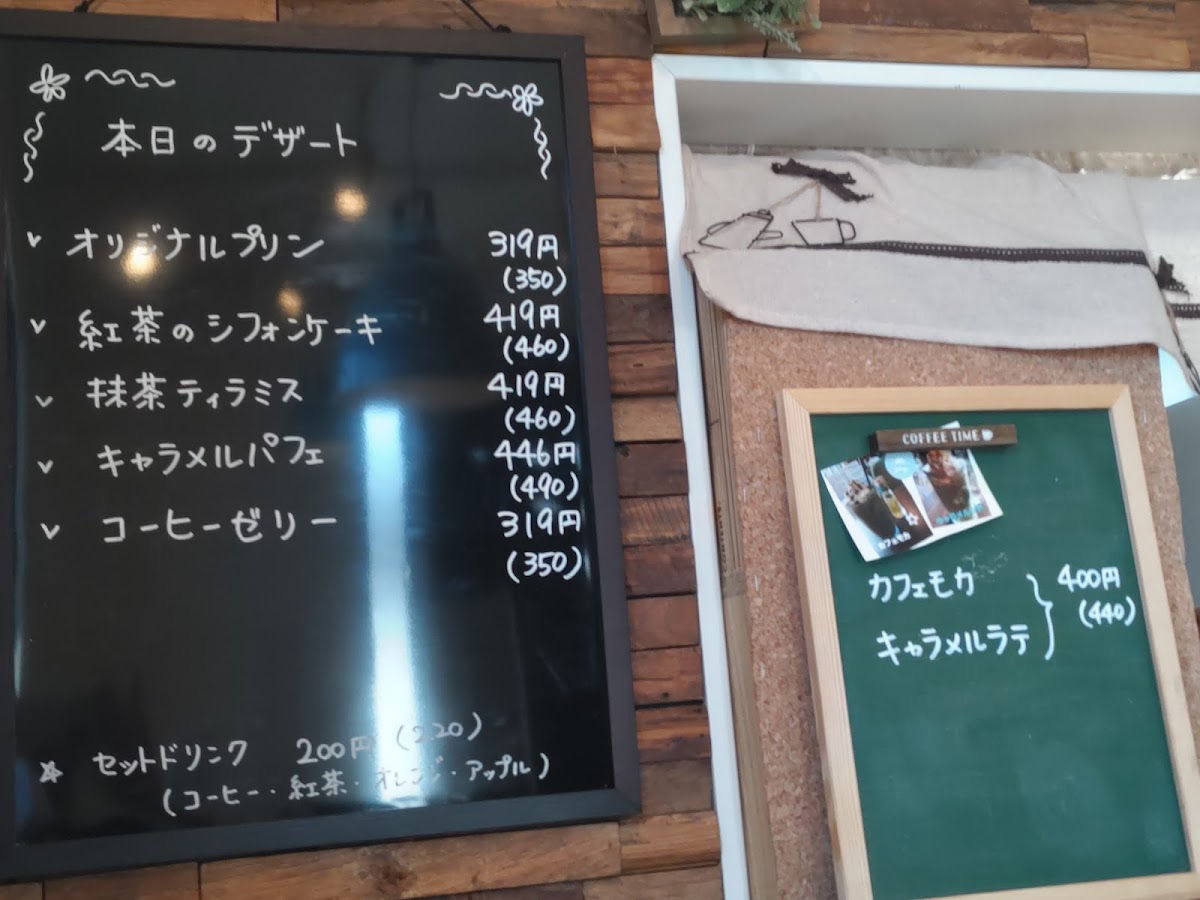 本日のデザート
オリジナルプリン 319円
(350)
紅茶のシフォンケーキ 419円
(460)
抹茶ティラミス 419円
(460)
キャラメルパフェ 446円
(490)
コーヒーゼリー 319円
(350)
セットドリンク 200円 (220)
(コーヒー・紅茶・オレンジ・アップル)
COFFEE TIME
カフェモカ
カフェモカ 400円
(440)
キャラメルラテ